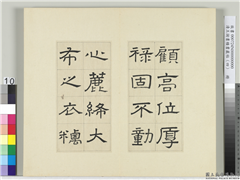 顧高位厚
祿固不動
心麤絺大
布之衣糲
10